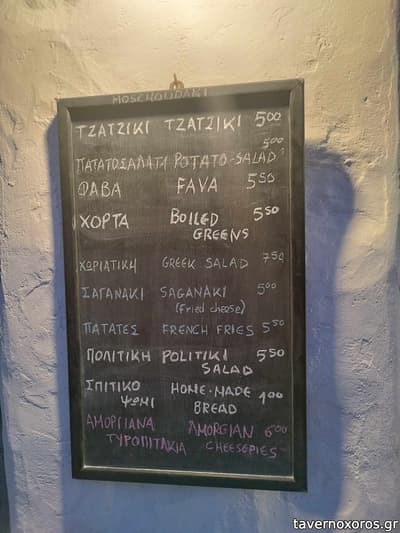 MOSCHOUDAKI
ΤΖΑΤΖΙΚΙ TZATZIKI 500
ΠΑΤΑΤΟΣΑΛΑΤΑ POTATO-SALAD 500
ΦΑΒΑ FAVA 550
ΧΟΡΤΑ BOILED 550
GREENS
ΧΩΡΙΑΤΙΚΗ GREEK SALAD 750
ΣΑΓΑΝΑΚΙ SAGANAKI 500
(Fried cheese)
ΠΑΤΑΤΕΣ FRENCH FRIES 550
ΠΟΛΙΤΙΚΗ POLITIKI 550
SALAD
ΣΠΙΤΙΚΟ HOME-MADE 100
ΨΩΜΙ BREAD
ΑΜΟΡΓΙΑΝΑ AMORGIAN 600
ΤΥΡΟΠΙΤΑΚΙΑ CHEESEPIES
tavernoxoros.gr